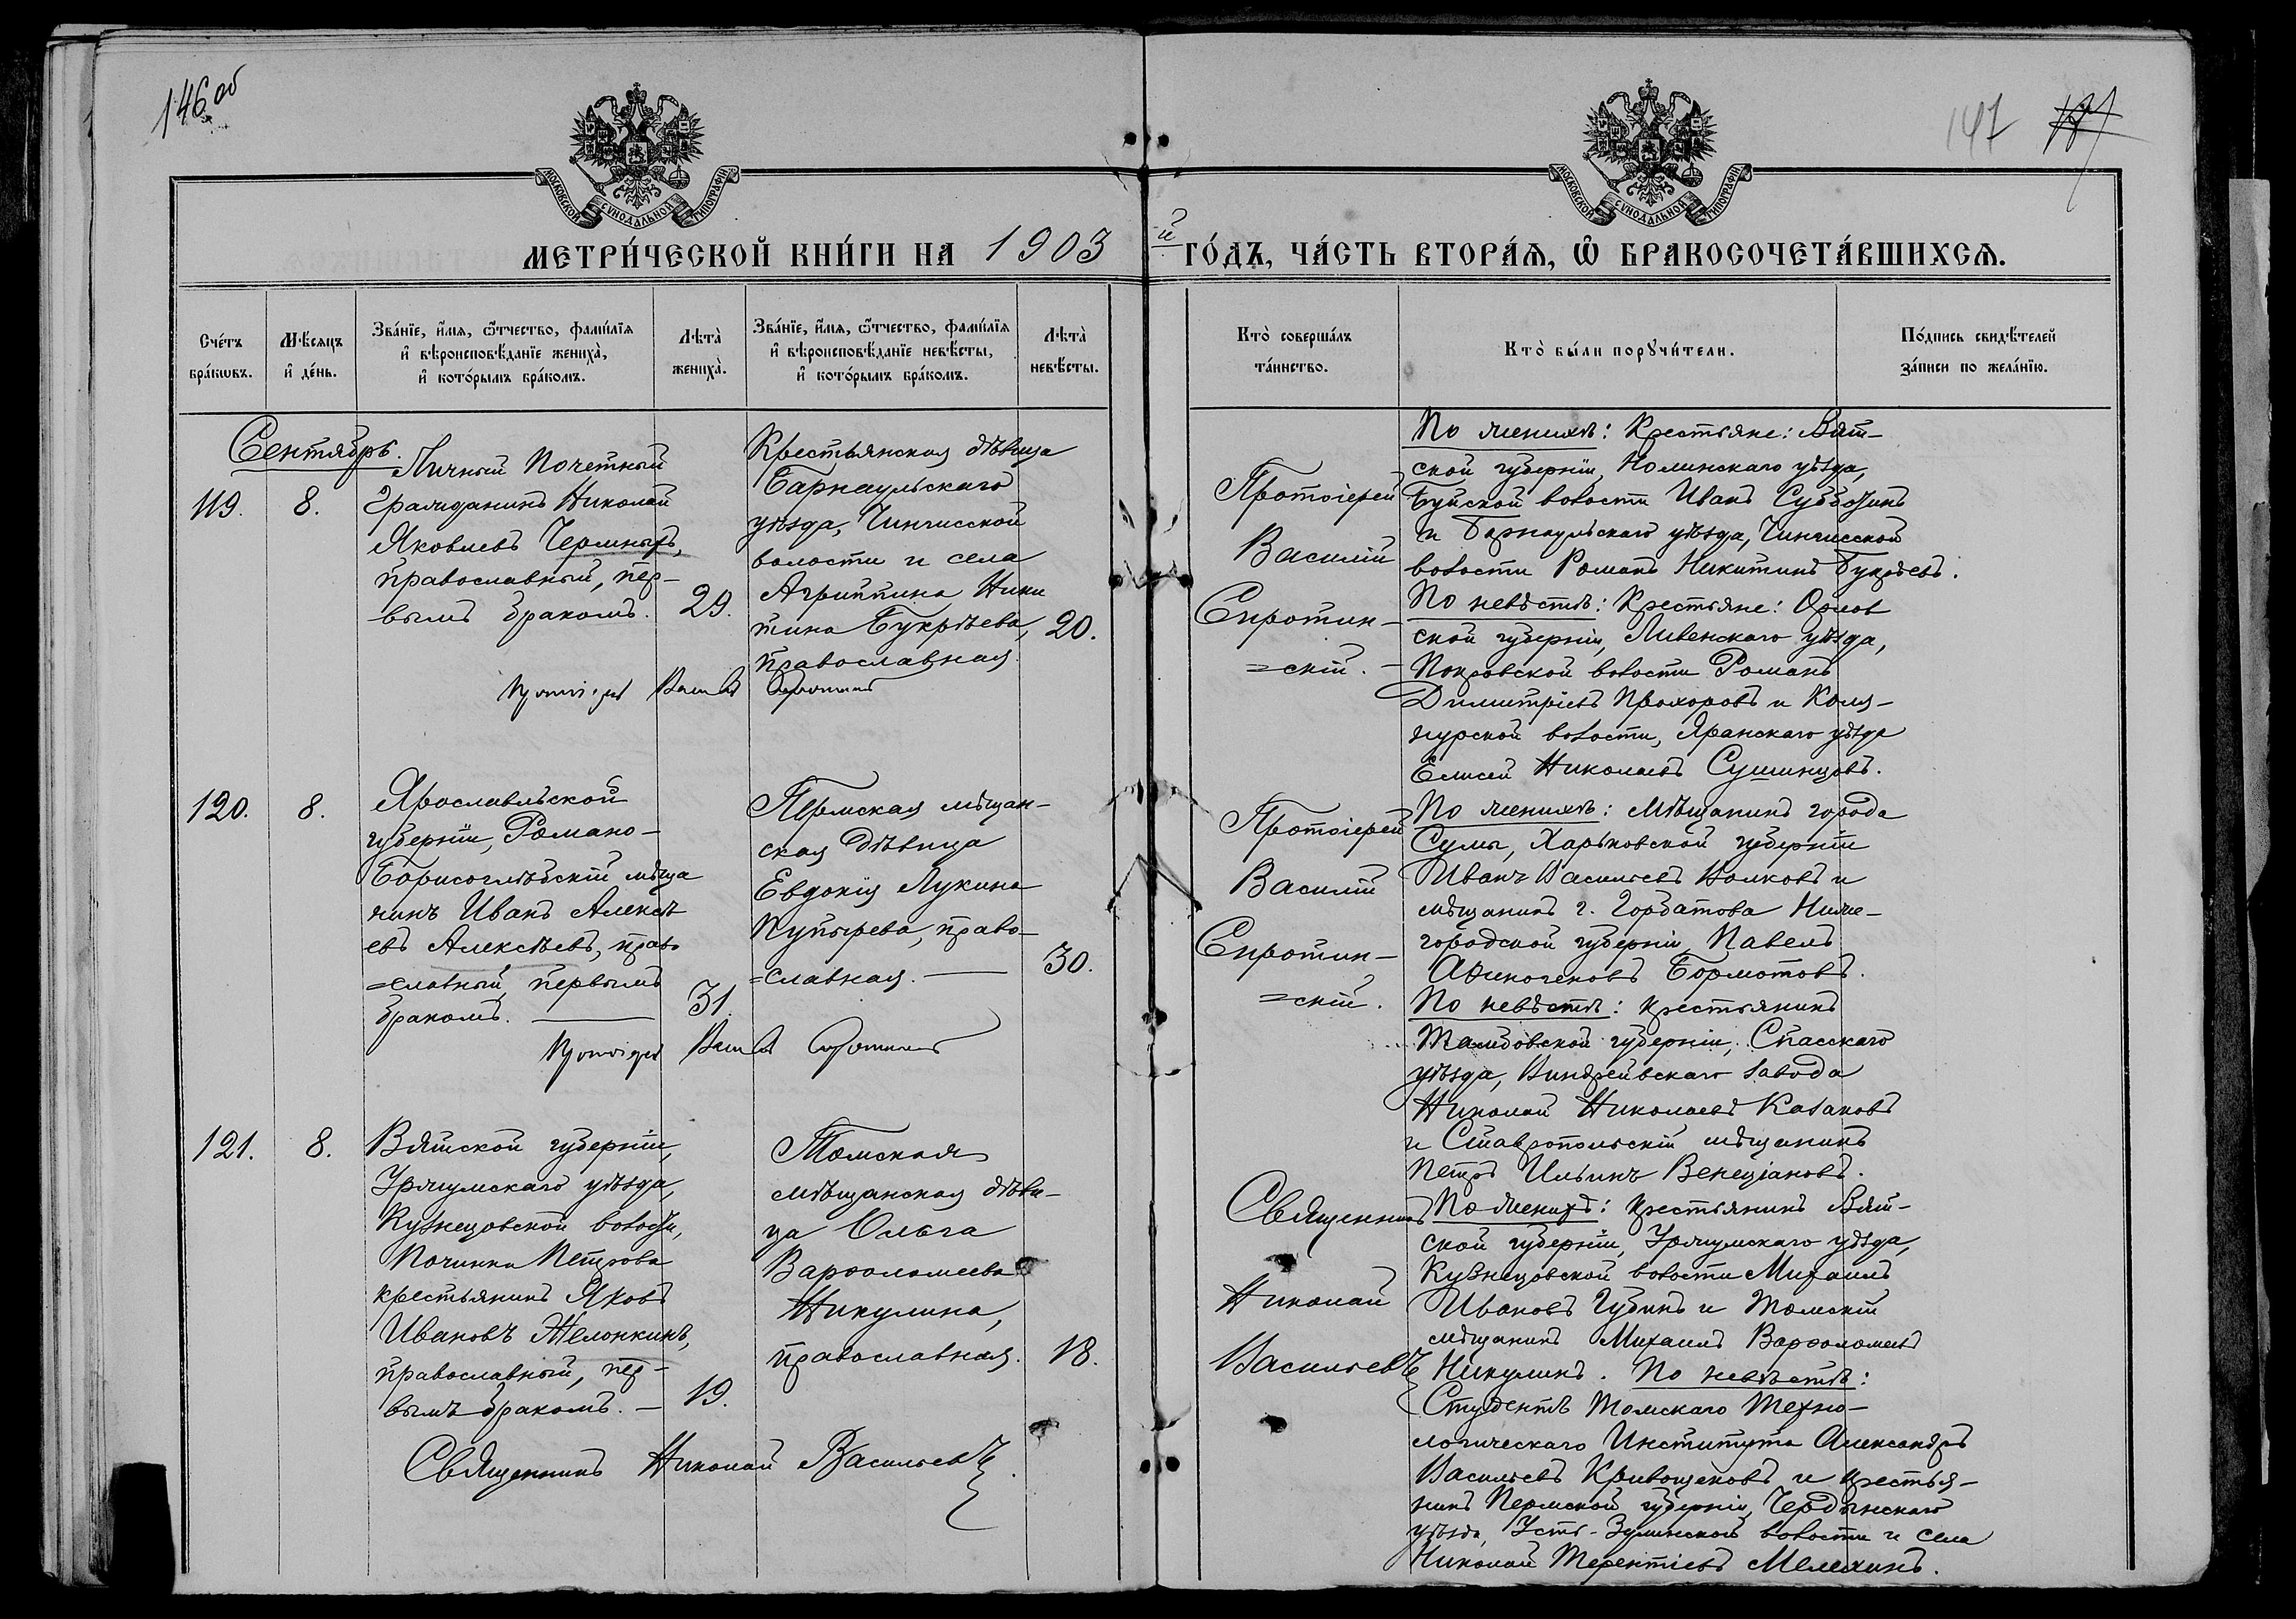 146 об
147
МОСКОВСКОЙ СѴНОДАЛЬНОЙ ТИПОГРАФІИ
МОСКОВСКОЙ СѴНОДАЛЬНОЙ ТИПОГРАФІИ
МЕТРИ́ЧЕСКОЙ КНИ́ГИ НА 1903 й ГО́ДЪ, ЧА́СТЬ ВТОРА́Ѧ, Ѽ БРАКОСОЧЕТА́ВШИХСѦ.
Сче́тъ бра́кѡвъ.
Мѣ́сяцъ и де́нь.
Зва́нїе, и́мѧ, ѻ҆́тчество, фами́лїѧ
и҆ вѣроисповѣ́данїе жениха̀,
и҆ кото́рымъ бра́комъ.
Лѣта̀ жениха̀.
Зва́нїе, и́мѧ, ѻ҆́тчество, фами́лїѧ
и҆ вѣроисповѣ́данїе невѣ́сты,
и҆ кото́рымъ бра́комъ.
Лѣта̀ невѣ́сты.
Кто̀ соверша́лъ та́инство.
Кто̀ бы́ли порꙋчи́тели.
По́дпись свидѣ́телей за́писи по жела́нїю.
Сентябрь.
119.
8.
Личный Почетный
Гражданинъ Николай
Яковлевъ Черныхъ,
православный, пер-
вымъ бракомъ.
29.
Крестьянская дѣвица
Барнаульскаго
уѣзда, Чингисской
волости и села
Агриппина Ники
тина Букрѣева,
православная.
20.
Протоіерей Васил Сиротин
Протоіерей
Василій
Сиротин-
=скій.
По женихѣ: Крестьяне: Вят-
ской губерніи, Нолинскаго уѣзда,
Буйской волости Иванъ Субботинъ
и Барнаульскаго уѣзда, Чингисской
волости Романъ Никитинъ Букрѣевъ.
По невѣстѣ: Крестьяне: Орлов
ской губерніи, Ливенскаго уѣзда,
Покровской волости Романъ
Димитріевъ Прохоровъ и Коля-
нурской волости, Яранскаго уѣзда
Елисей Николаевъ Сушинцовъ.
120.
8.
Ярославльской
губерніи, Романо-
Борисоглѣбскій мѣща
нинъ Иванъ Алексѣ
евъ Алексѣевъ, право
=славный, первымъ
бракомъ.
31.
Пермская мѣщан-
ская дѣвица
Евдокія Лукина
Пупырева, право-
=славная.
30.
Протоіерей Васил Сиротин
Протоіерей
Василій
Сиротин-
=скій.
По женихѣ: Мѣщанинъ города
Сумы, Харьковской губерніи
Иванъ Васильевъ Волковъ и
мѣщанинъ г. Горбатова Ниже-
городской губерніи Павелъ
Финогеновъ Бормотовъ.
По невѣстѣ: крестьянинъ
Тамбовской губерніи, Спасскаго
уѣзда, Виндрейвскаго завода
Николай Николаевъ Казаковъ
и Ставропольскій мѣщанинъ
Петръ Ильинъ Венеціановъ.
121.
8.
Вятской губерніи,
Уржумскаго уѣзда,
Кузнецовской волости,
Починка Петрова
крестьянинъ Яковъ
Ивановъ Желонкинъ,
православный, пер-
вымъ бракомъ.
19.
Томская
мѣщанская дѣви-
ца Ольга
Варфоломеева
Никулина,
православная.
18.
Священникъ Николай Васильевъ.
Священникъ
Николай
Васильевъ
По женихѣ: крестьянинъ Вят-
ской губерніи, Уржумскаго уѣзда,
Кузнецовской волости Михаилъ
Ивановъ Губинъ и Томскій
мѣщанинъ Михаилъ Варфоломеевъ
Никулинъ. По невѣстѣ:
Студентъ Томскаго Техно-
логическаго Института Александръ
Васильевъ Кривощековъ и крестья-
нинъ Пермской губерніи, Чердынскаго
уѣзда, Усть-Зулинской волости и села
Николай Терентіевъ Мелехинъ.